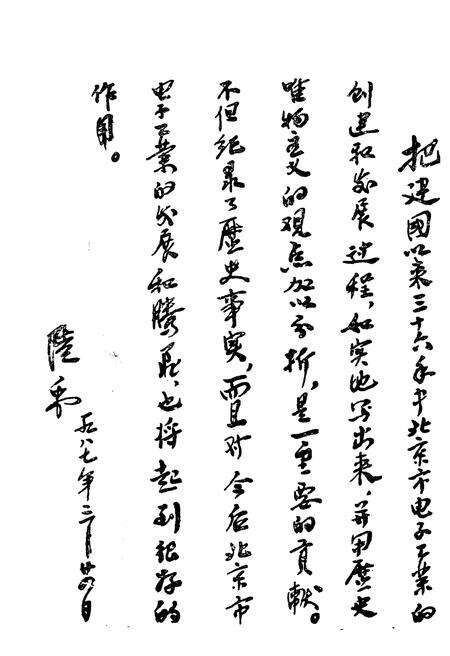 把建國以来三十六年中北京市电子工业的
创建和发展过程，如实地写出来，并用歷史
唯物主义的观点加以分析，是一重要的贡献。
不但纪录了歷史事实，而且对今后北京市
电子工業的发展和腾飞，也将起到很好的
作用。
陸禹
一九八七年三月廿四日